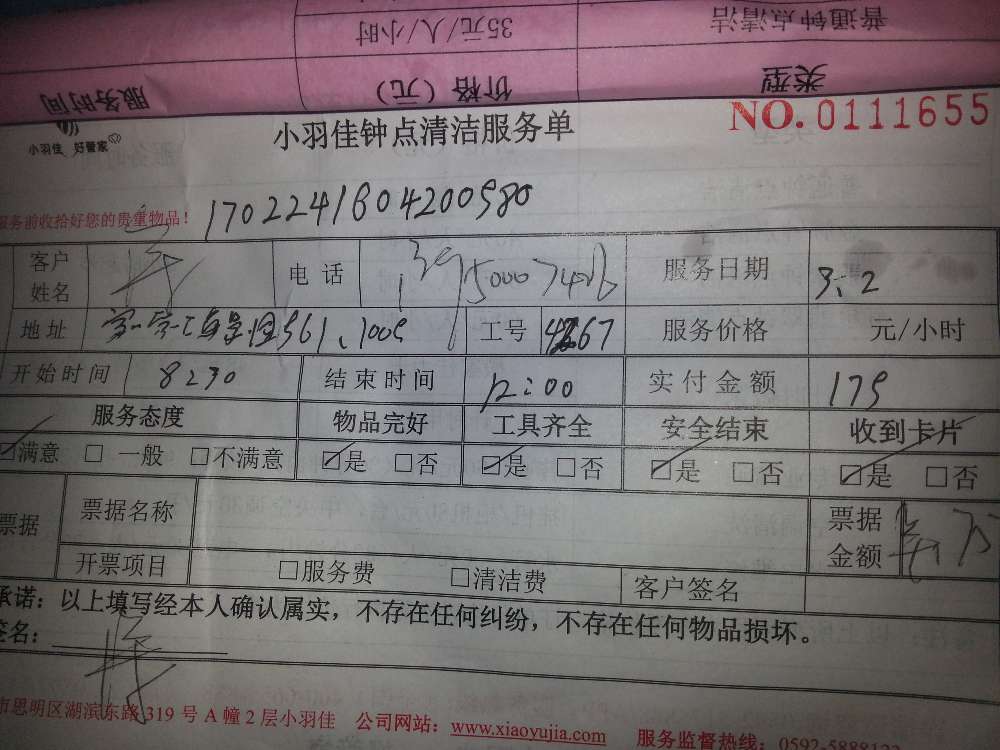 普通钟点清洁 35元/人/小时
类型 价格（元） 服务时间
小羽佳 好管家
小羽佳钟点清洁服务单
NO.0111655
服务前收拾好您的贵重物品！
1702241804200980
客户姓名 电话 服务日期 3:2
地址 工号 服务价格 元/小时
开始时间 8230 结束时间 12:00 实付金额 175
服务态度 物品完好 工具齐全 安全结束 收到卡片
☑满意 □一般 □不满意 ☑是 □否 ☑是 □否 ☑是 □否 ☑是 □否
票据 票据名称 票据金额
开票项目 □服务费 □清洁费 客户签名
承诺：以上填写经本人确认属实，不存在任何纠纷，不存在任何物品损坏。
签名：
市思明区湖滨东路319号A幢2层小羽佳 公司网站：www.xiaoyujia.com 服务监督热线：0592-5888123